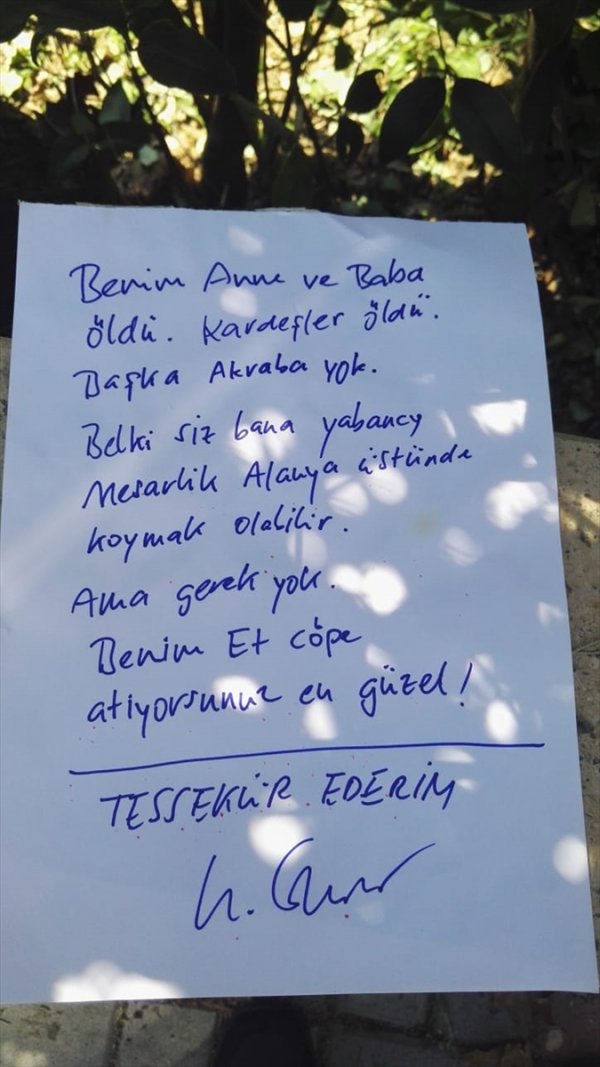 Benim Anne ve Baba
öldü. Kardeşler öldü.
Başka Akraba yok.
Belki siz bana yabancy
Mesarlik Alanya üstünde
koymak olabilir.
Ama gerek yok.
Benim Et cöpe
atiyorsunuz en güzel!
TESSEKÜR EDERIM